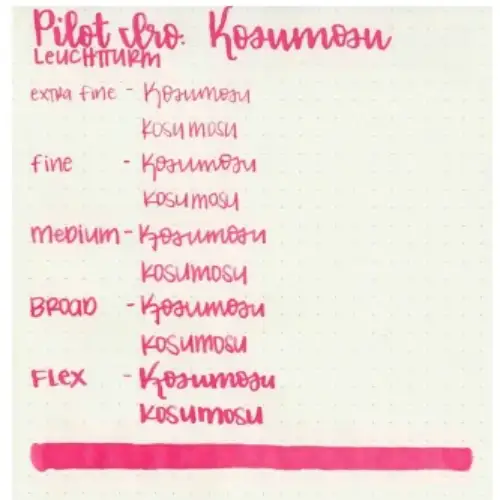 Pilot Iro: Kosumosu
LEUCHTTURM
extra fine - Kosumosu
KOSUMOSU
fine - Kosumosu
KOSUMOSU
MEDIUM - Kosumosu
KOSUMOSU
BROAD - Kosumosu
KOSUMOSU
FLEX - Kosumosu
KOSUMOSU